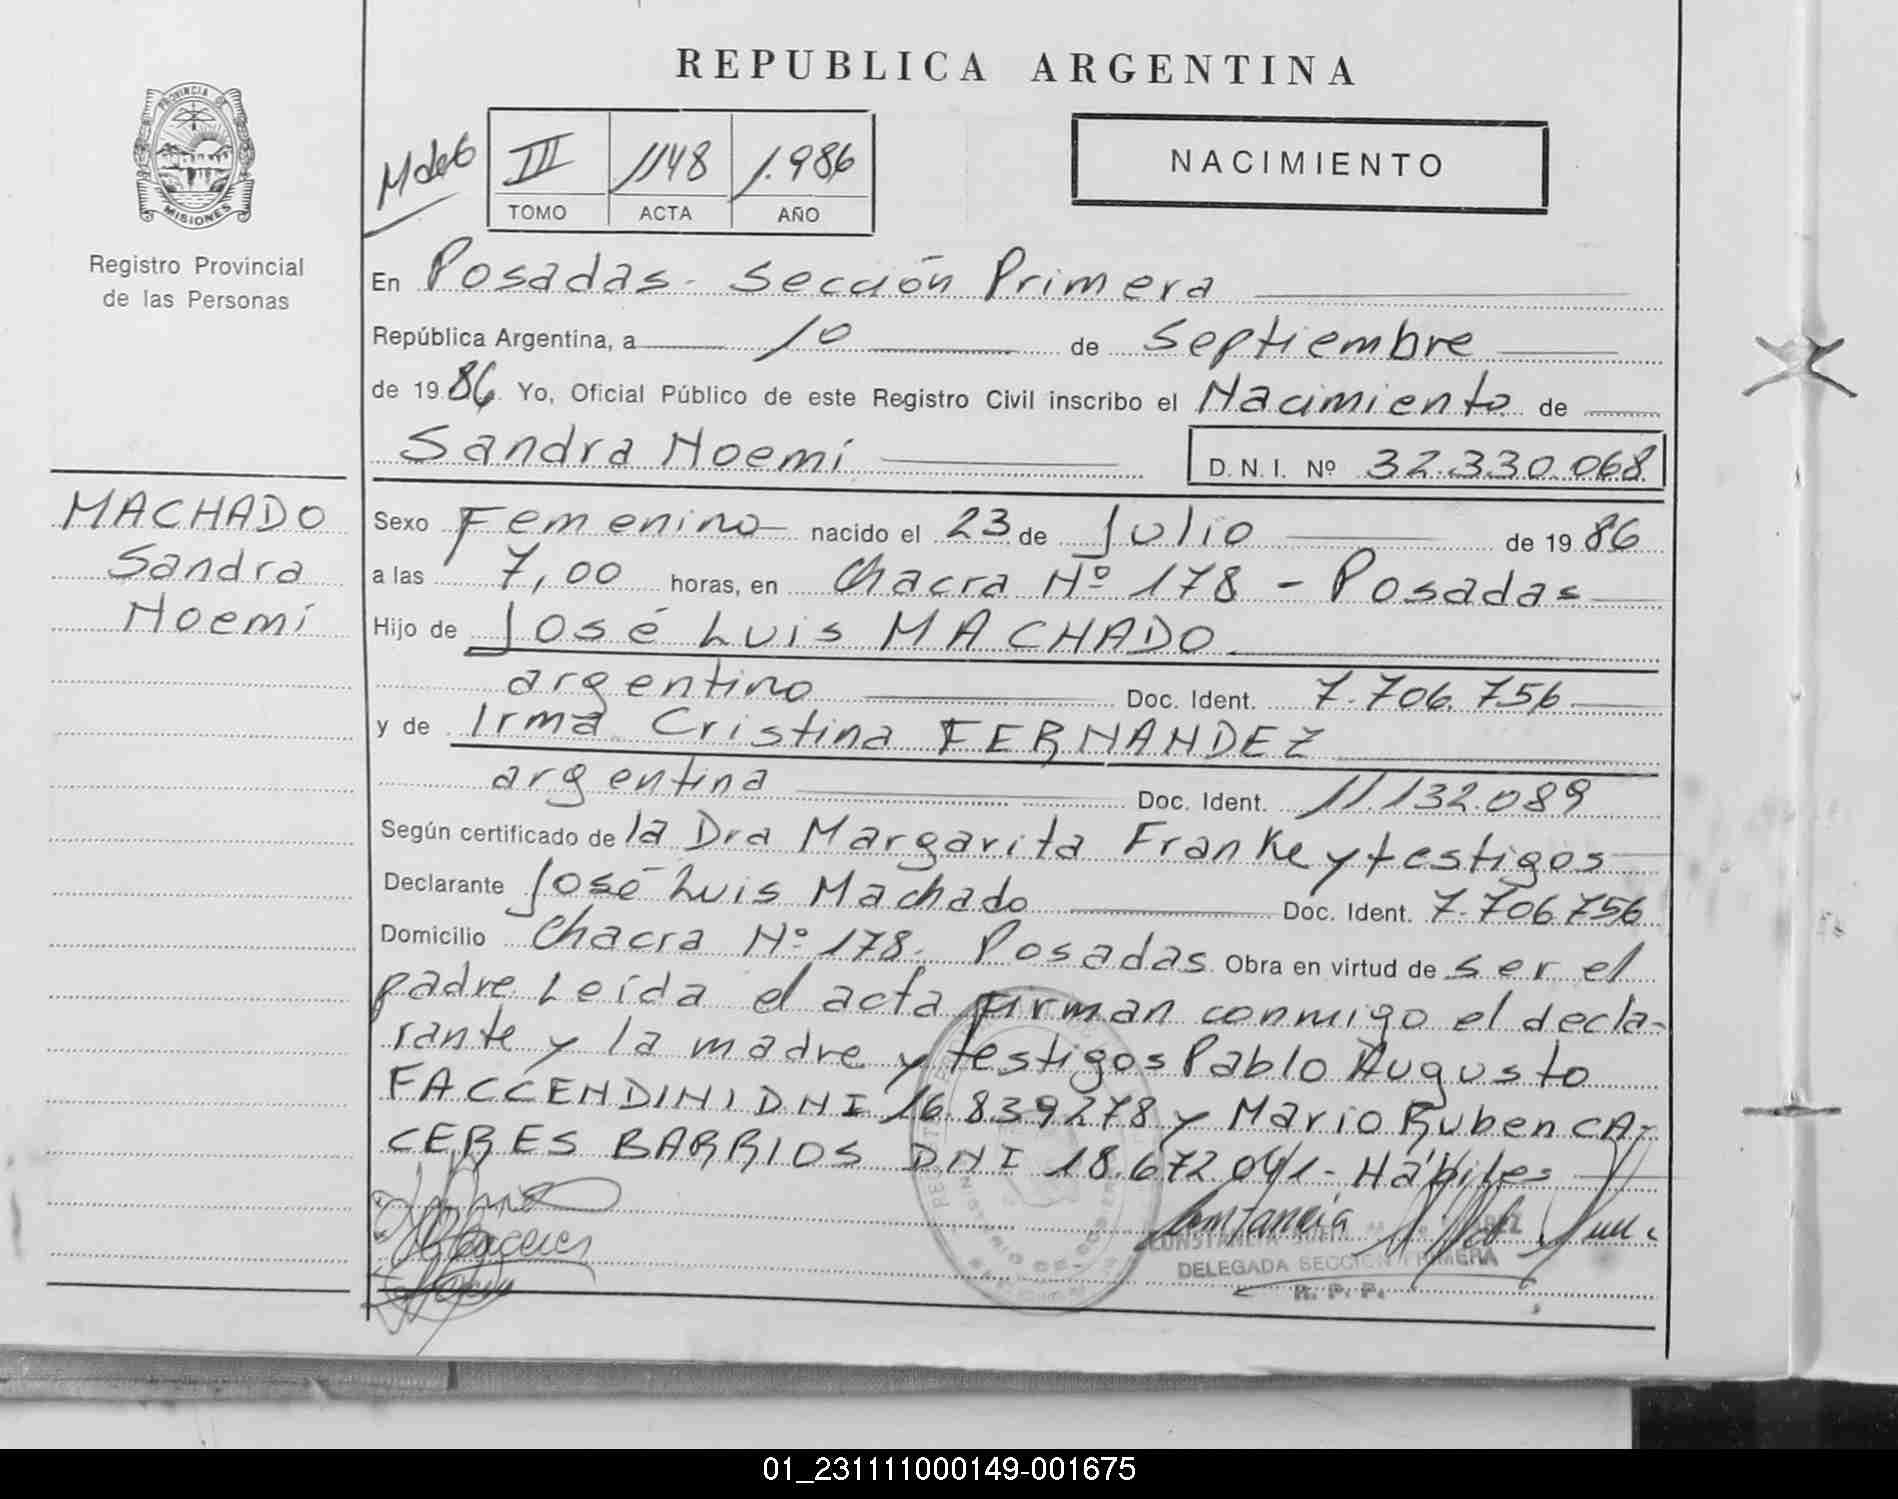 REPUBLICA ARGENTINA
PROVINCIA DE
MISIONES
Registro Provincial
de las Personas
M de 6
III 1148 1.986
TOMO ACTA AÑO
NACIMIENTO
En Posadas - Sección Primera
República Argentina, a 10 de Septiembre
de 1986 Yo, Oficial Público de este Registro Civil inscribo el Nacimiento de
Sandra Noemí
D. N. I. Nº 32.330.068
MACHADO
Sandra
Noemí
Sexo Femenino nacido el 23 de Julio de 1986
a las 7,00 horas, en Chacra Nº 178 - Posadas
Hijo de José Luis MACHADO
argentino Doc. Ident. 7.706.756
y de Irma Cristina FERNANDEZ
argentina Doc. Ident. 11.132.089
Según certificado de la Dra Margarita Franke y testigos
Declarante José Luis Machado Doc. Ident. 7.706.756
Domicilio Chacra Nº 178. Posadas Obra en virtud de ser el
padre Leída el acta firman conmigo el decla-
rante y la madre y testigos Pablo Augusto
FACCENDINI DNI 16.839278 y Mario Ruben CA-
CERES BARRIOS DNI 18.672.041 - Hábiles
Constancia
CONSTANCIA
DELEGADA SECCION PRIMERA
R. P. P.
01_231111000149-001675